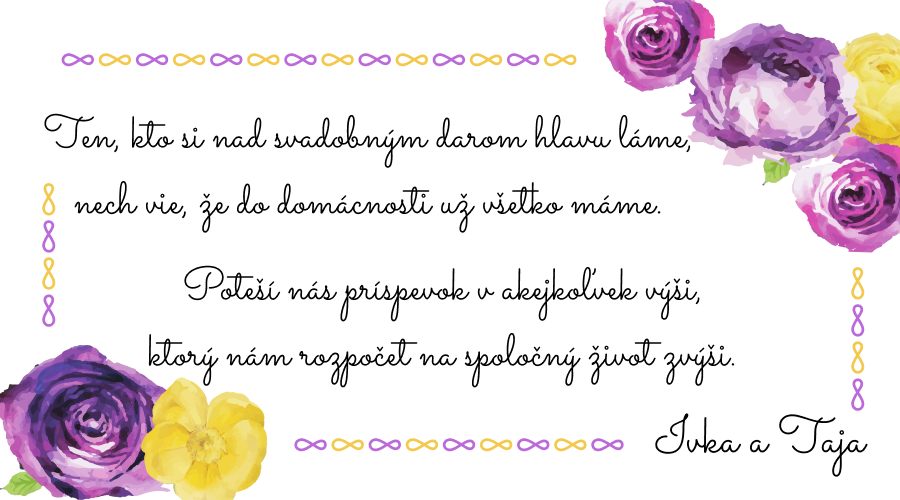 Ten, kto si nad svadobným darom hlavu láme,
nech vie, že do domácnosti už všetko máme.
Poteší nás príspevok v akejkoľvek výši,
ktorý nám rozpočet na spoločný život zvýši.
Ivka a Taja